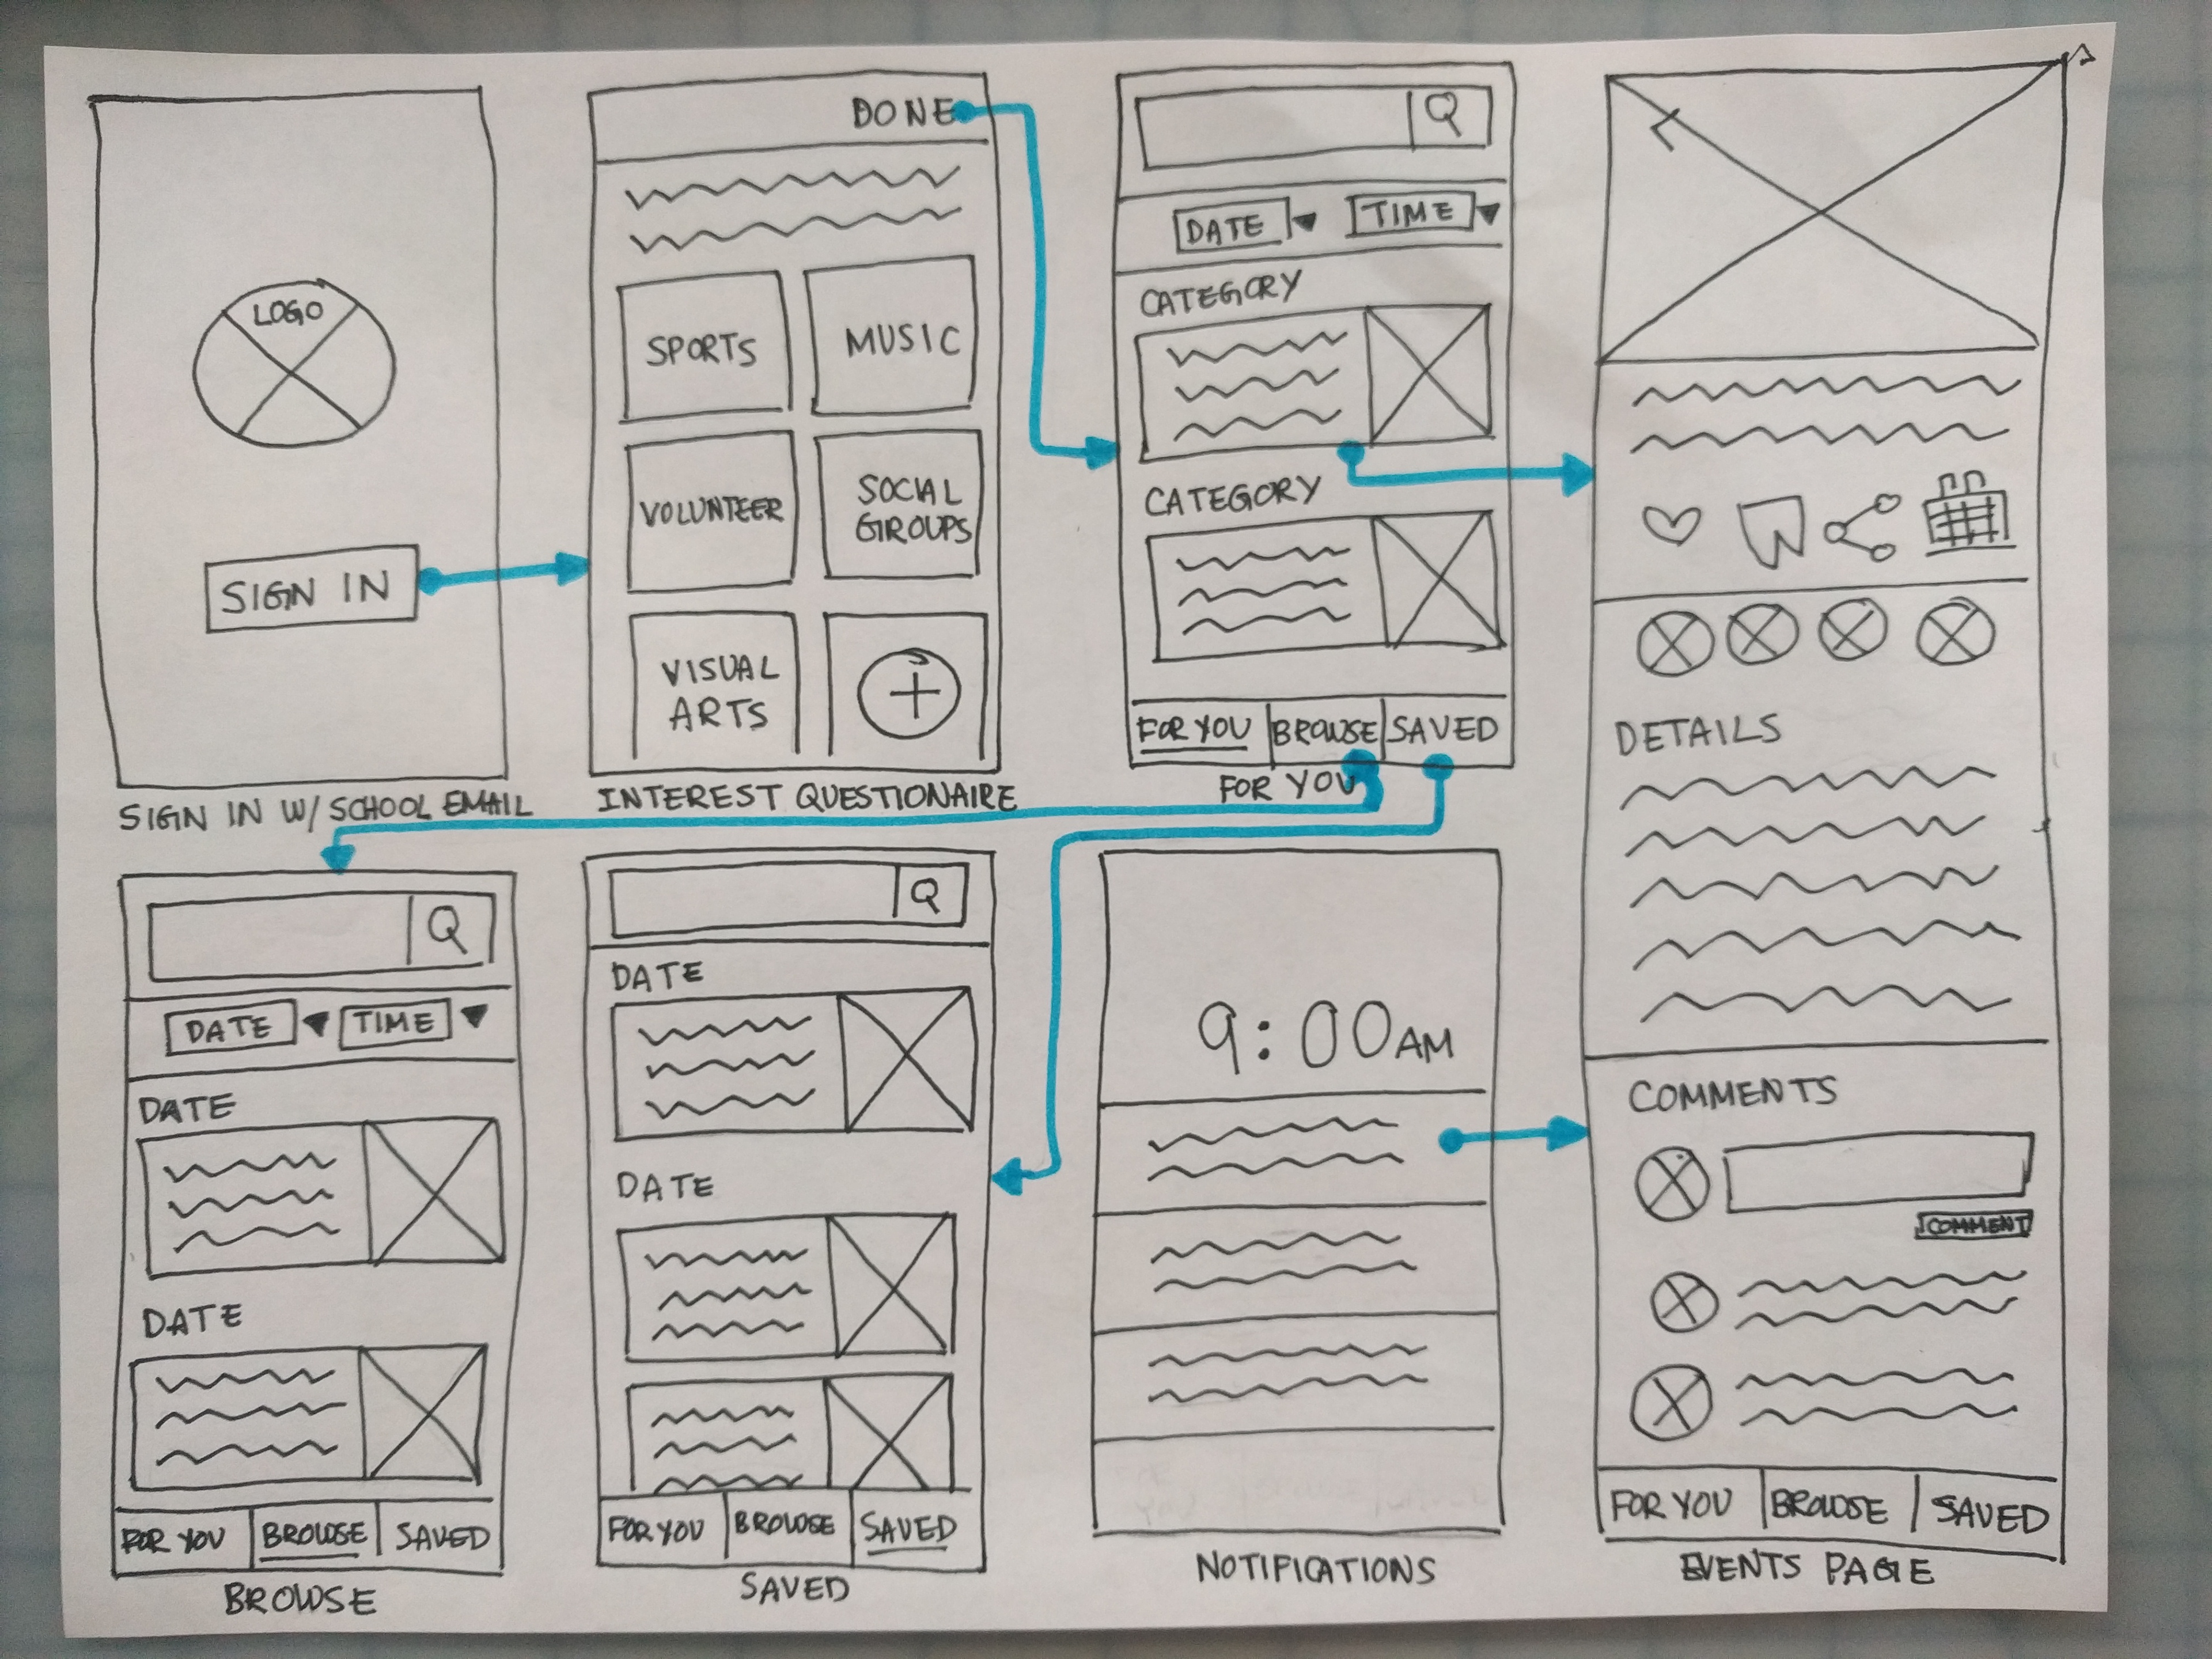 LOGO
SIGN IN
SIGN IN W/ SCHOOL EMAIL
DONE
SPORTS
MUSIC
VOLUNTEER
SOCIAL
GROUPS
VISUAL
ARTS
INTEREST QUESTIONAIRE
DATE
TIME
CATEGORY
CATEGORY
FOR YOU
BROWSE
SAVED
FOR YOU
DETAILS
COMMENTS
COMMENT
FOR YOU
BROWSE
SAVED
EVENTS PAGE
DATE
TIME
DATE
DATE
FOR YOU
BROWSE
SAVED
BROWSE
DATE
DATE
FOR YOU
BROWSE
SAVED
SAVED
9:00AM
NOTIFICATIONS